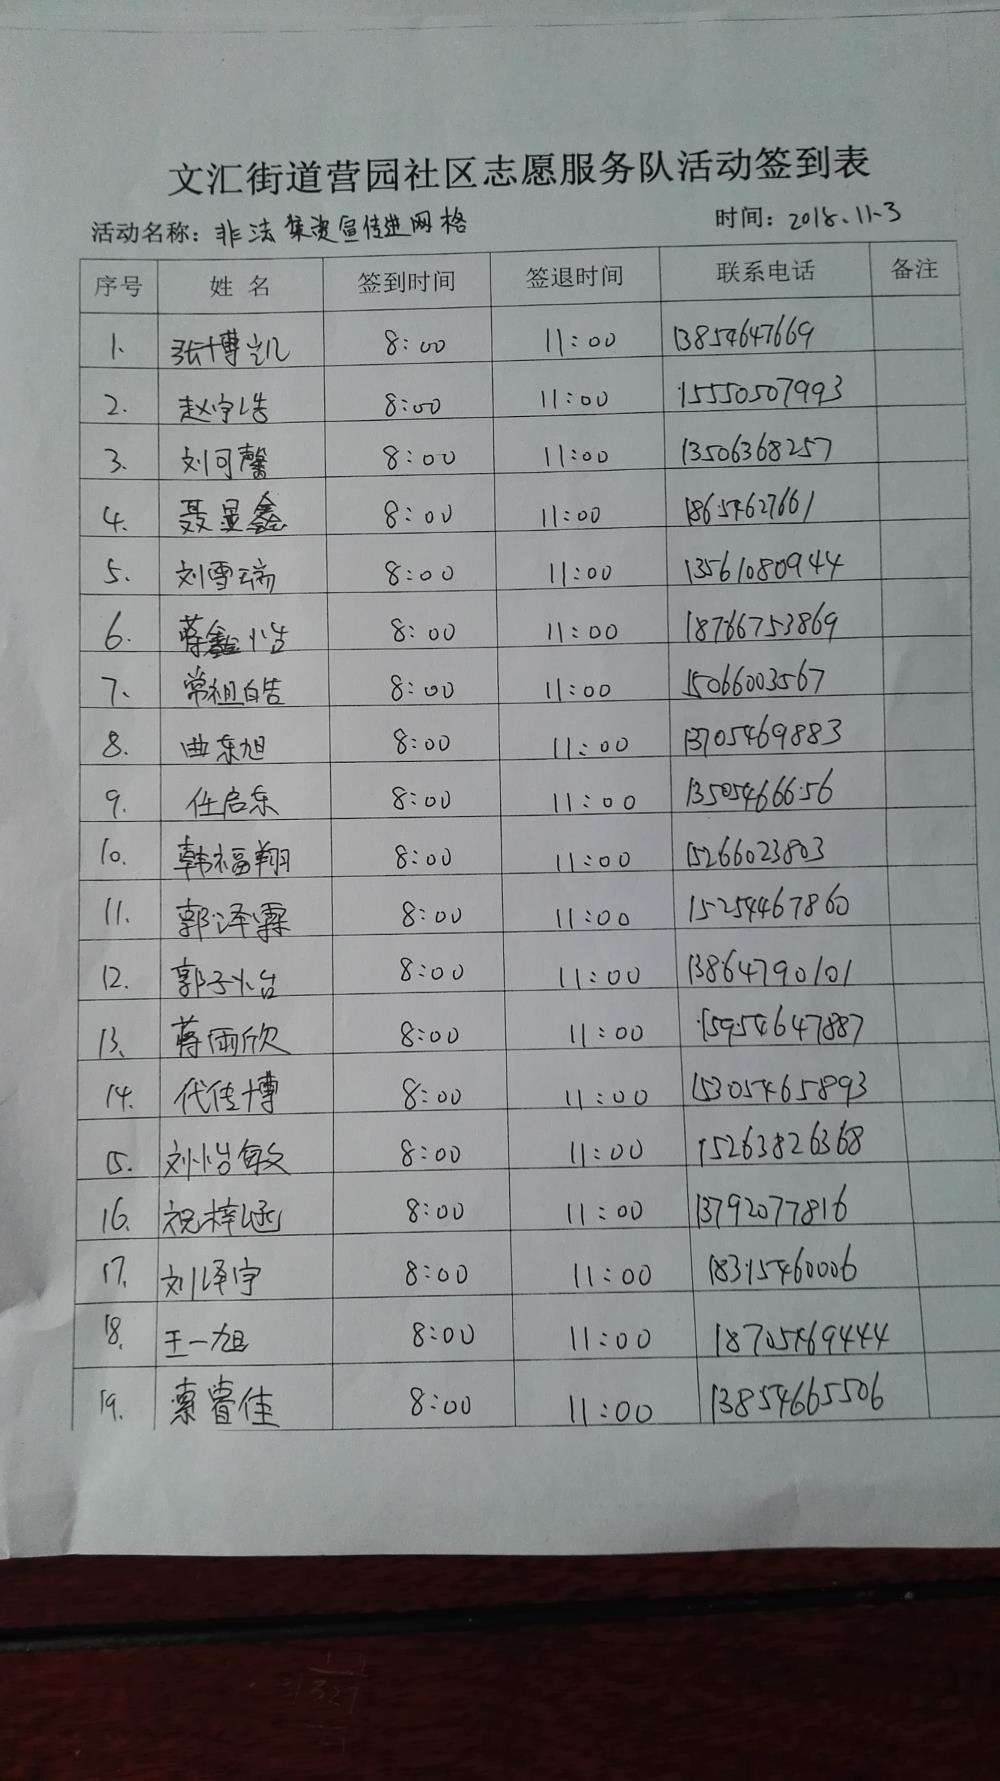 文汇街道营园社区志愿服务队活动签到表
活动名称：非法集资宣传进网格 时间：2018.11.3
序号 姓名 签到时间 签退时间 联系电话 备注
1. 张博凯 8:00 11:00 13854647669
2. 赵宇浩 8:00 11:00 15550507993
3. 刘可馨 8:00 11:00 13506368257
4. 聂显鑫 8:00 11:00 18654627661
5. 刘雪瑞 8:00 11:00 13561080944
6. 蒋鑫浩 8:00 11:00 18766753869
7. 常祖皓 8:00 11:00 15066003567
8. 曲东旭 8:00 11:00 13705469883
9. 任启东 8:00 11:00 13505466656
10. 韩福翔 8:00 11:00 15266023803
11. 郭泽霖 8:00 11:00 15254467860
12. 郭子怡 8:00 11:00 13864790101
13. 蒋雨欣 8:00 11:00 15954647887
14. 代传博 8:00 11:00 15305465893
15. 刘怡敏 8:00 11:00 15263826368
16. 祝梓涵 8:00 11:00 13792077816
17. 刘泽宇 8:00 11:00 18315460006
18. 王一旭 8:00 11:00 18705469444
19. 索睿佳 8:00 11:00 13854665506
327